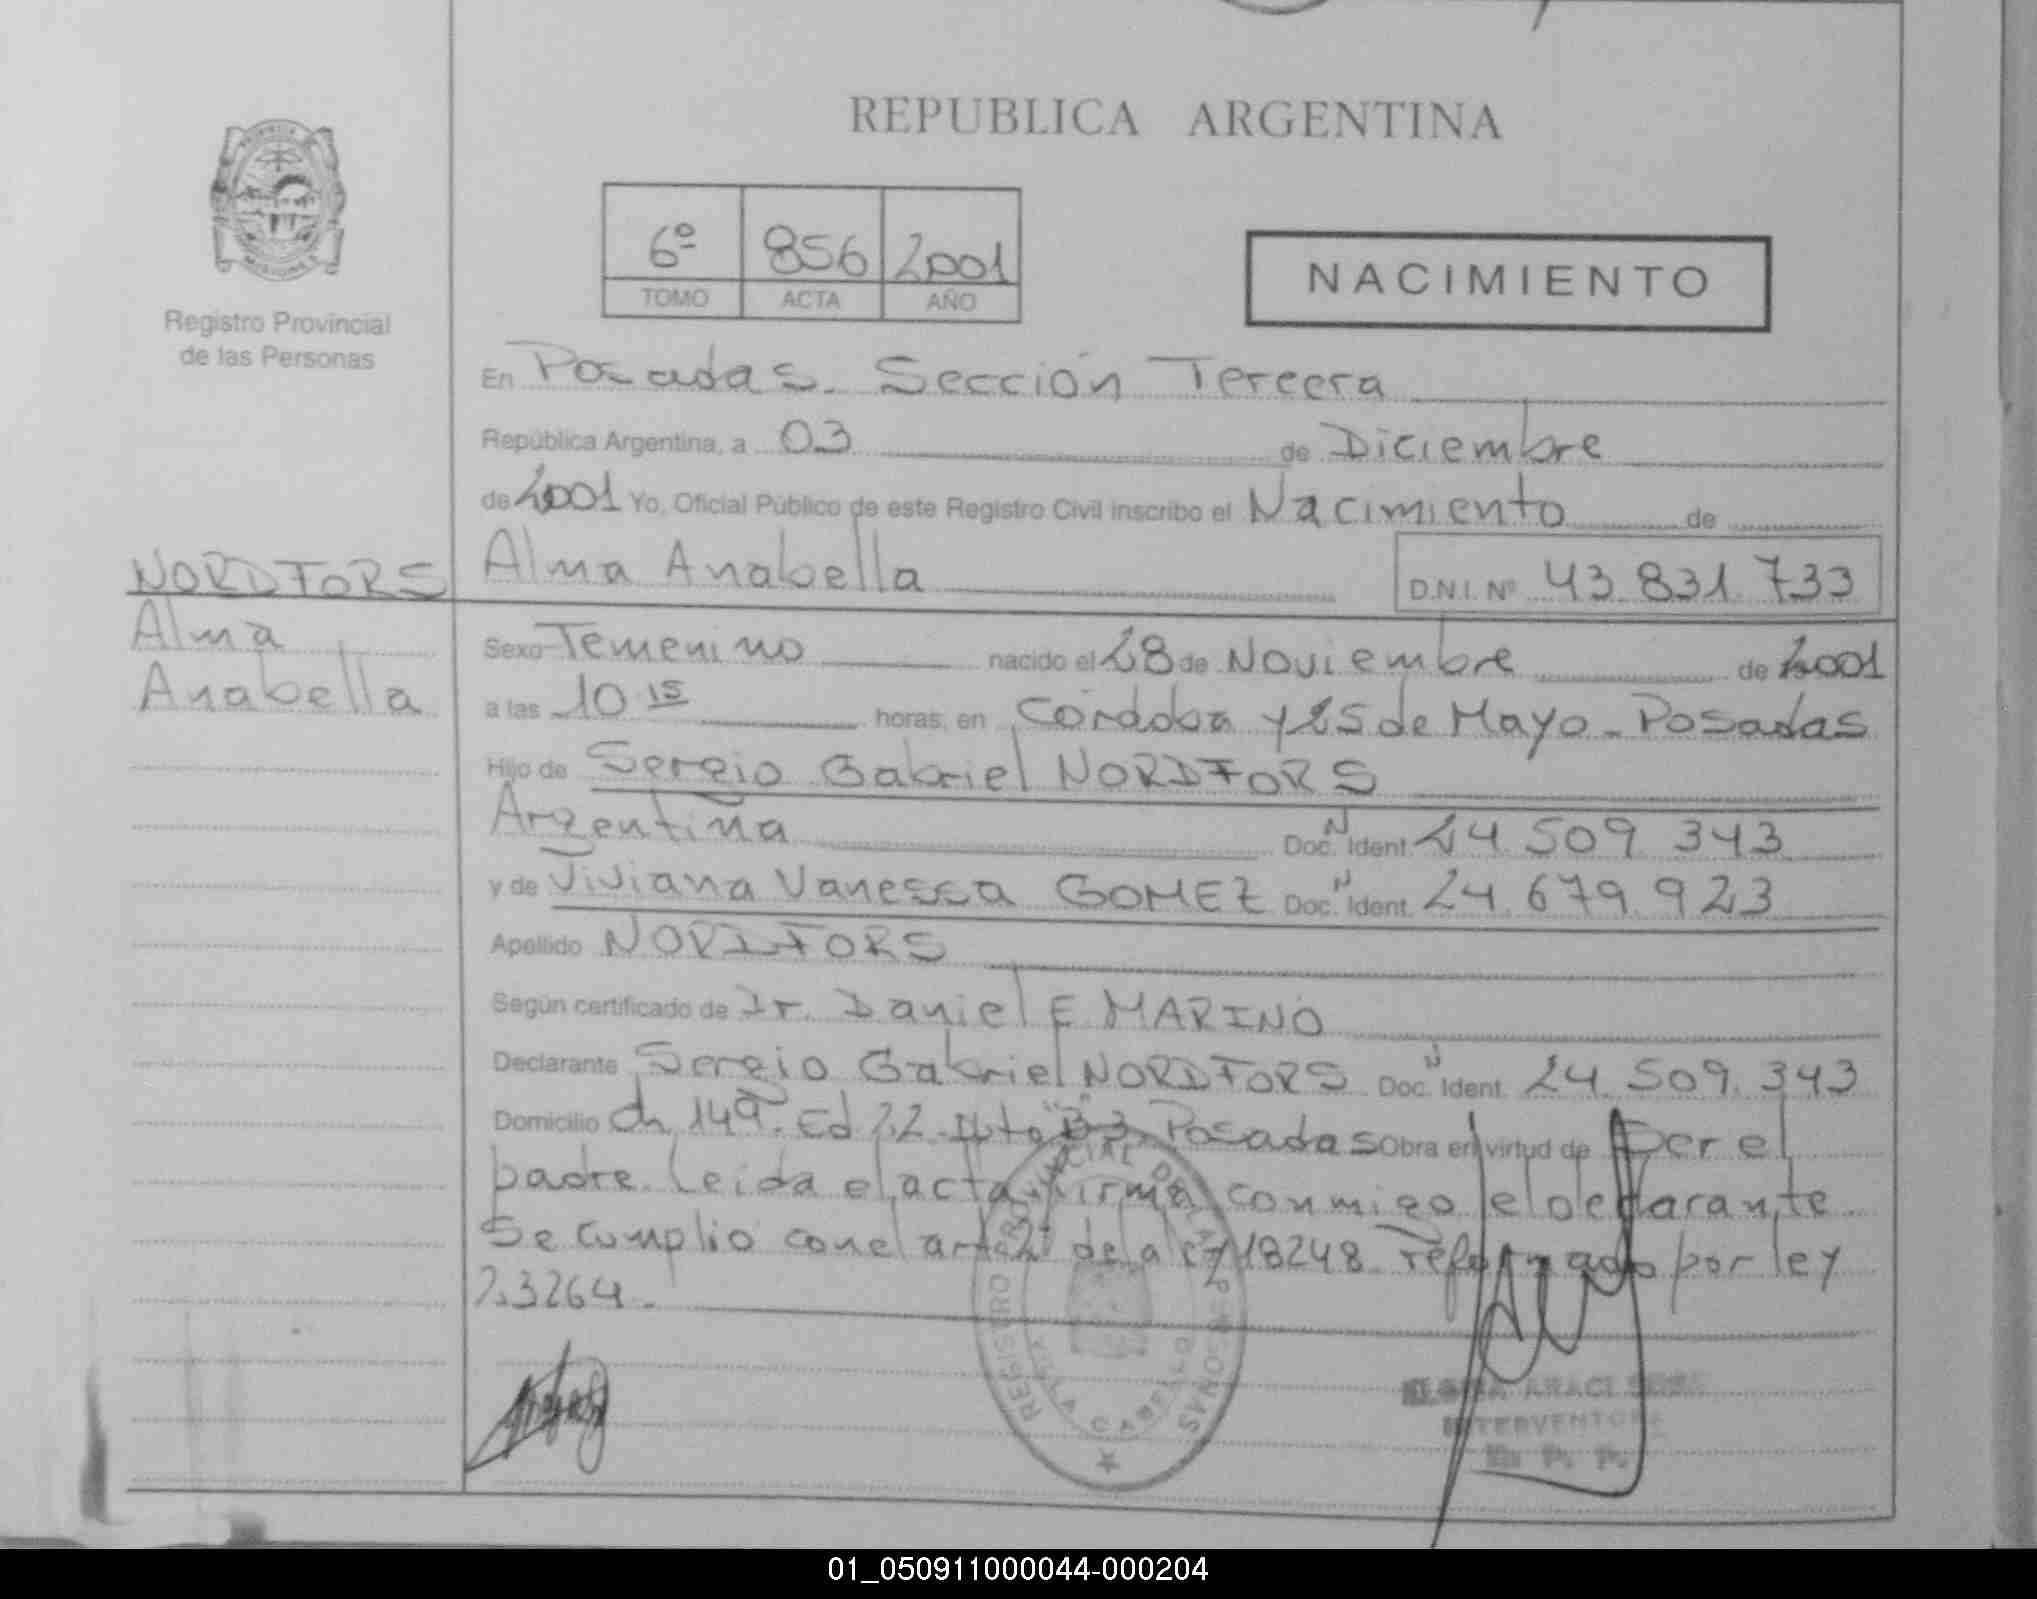 REPUBLICA ARGENTINA
6º 856 2001
TOMO ACTA AÑO
NACIMIENTO
Registro Provincial
de las Personas
En Posadas. Sección Tercera
República Argentina, a 03 de Diciembre
de 2001 Yo, Oficial Público de este Registro Civil inscribo el Nacimiento de
Alma Anabella D.N.I. Nº 43.831.733
NORDFORS
Alma
Anabella
Sexo Femenino nacido el 28 de Noviembre de 2001
a las 10 15 horas, en Córdoba y 25 de Mayo - Posadas
Hijo de Sergio Gabriel NORDFORS
Argentina Doc. N Ident. 24.509.343
y de Viviana Vanessa GOMEZ Doc. N Ident. 24.679.923
Apellido NORDFORS
Según certificado de Dr. Daniel E MARINO
Declarante Sergio Gabriel NORDFORS Doc. N Ident. 24.509.343
Domicilio Ch 149. Ed 22 Posadas Obra en virtud de Ser el
padre. Leida el acta firma conmigo el declarante.
Se cumplio con el art de la ley 18248 reformado por ley
23264.
REGISTRO PROVINCIAL DE LAS PERSONAS
VILLA CABELLO
INTERVENTORA
R. P. P.
01_050911000044-000204